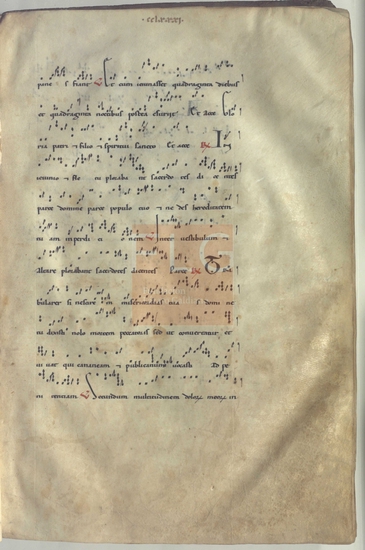 ·cclxxxxj·
pane s fiunt Et cum ieiunasset quadraginta diebus
et quadraginta noctibus postea esuriit Et acce Glo
ria patri filio spiritui sancto Et acce In
ieiunio fletu plorabant sacerdo tes di cen tes
parce domine parce populo tuo ne des hereditatem
tu am in perditi o nem Inter vestibulum
Altare plorabunt sacerdotes dicentes Parce Tri
bularer si nescirem misericordias tuas domine
tu dixisti nolo mortem peccatoris sed ut convertatur et
vi vat qui cananeam publicanum vocasti Ad pe
ni tentiam Secundum multitudinem dolorum meorum in